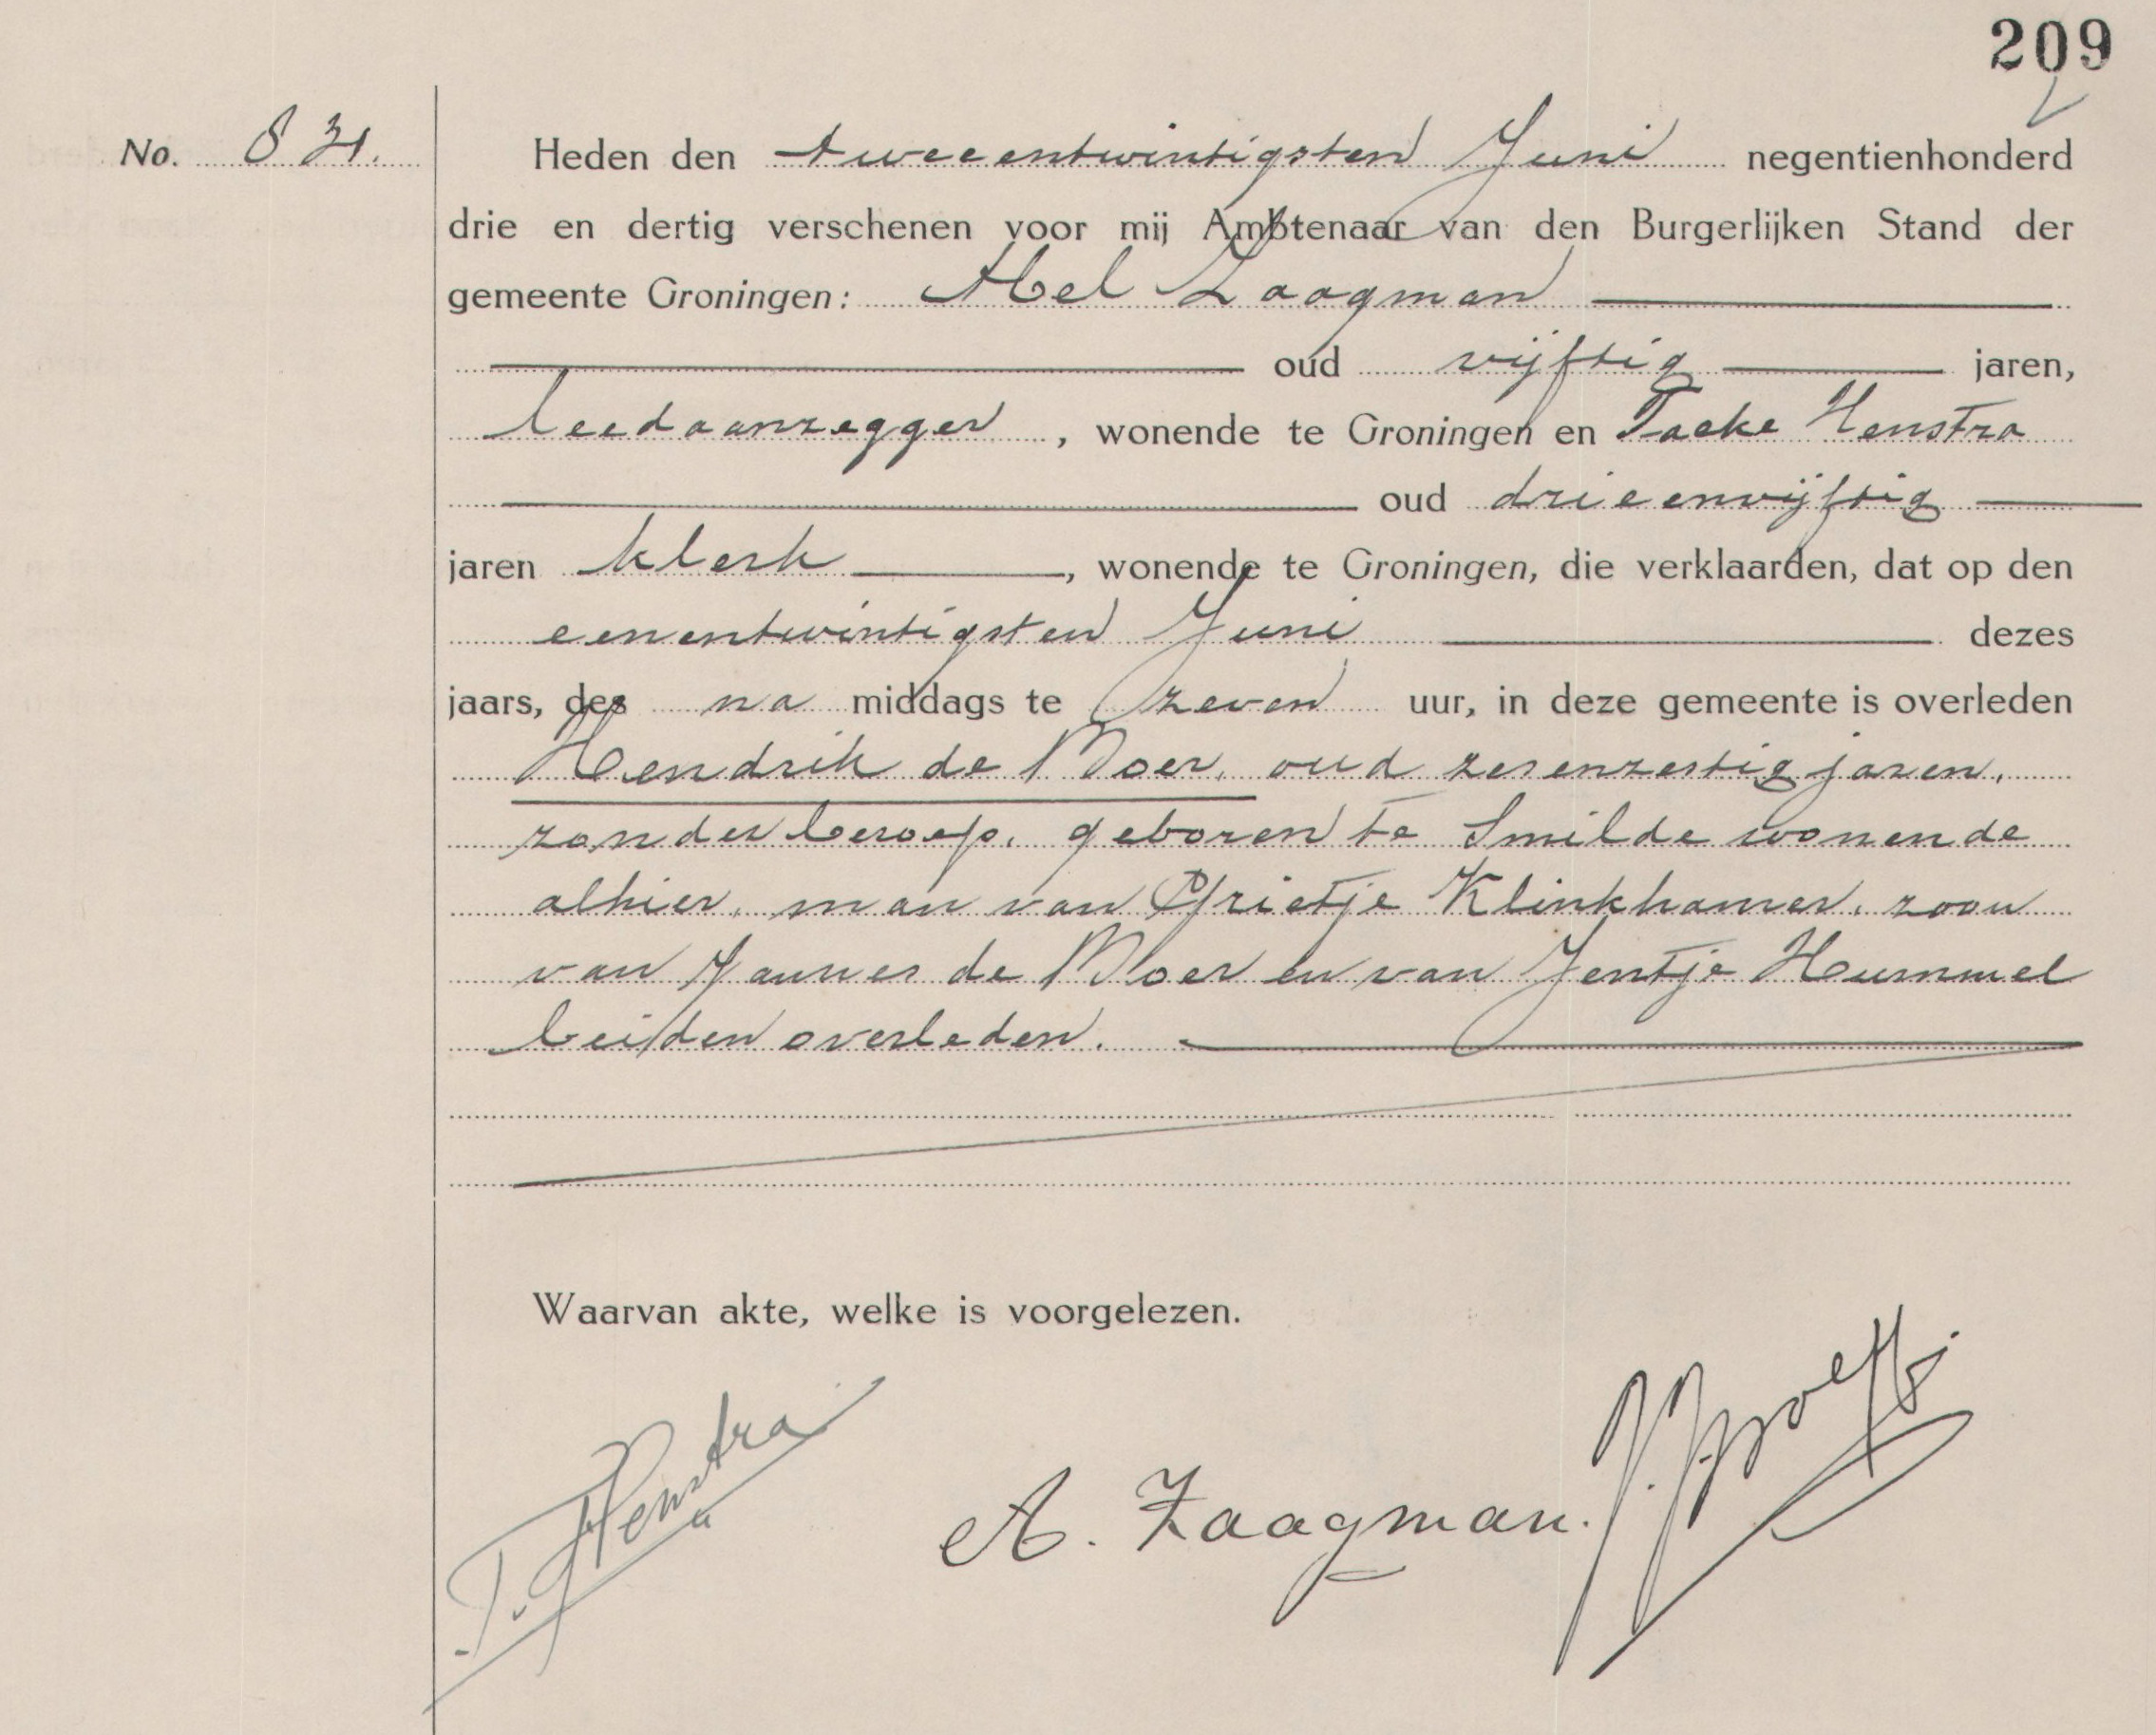 209
No. 831.
Heden den tweeentwintigsten Juni negentienhonderd
drie en dertig verschenen voor mij Ambtenaar van den Burgerlijken Stand der
gemeente Groningen: Abel Zaagman
oud vijftig jaren,
leedaanzegger, wonende te Groningen en Taeke Henstra
oud drieenvijftig
jaren klerk, wonende te Groningen, die verklaarden, dat op den
eenentwintigsten Juni dezes
jaars, des na middags te zeven uur, in deze gemeente is overleden
Hendrik de Boer, oud zesenzestig jaren,
zonder beroep, geboren te Smilde wonende
alhier, man van Grietje Klinkhamer, zoon
van Jannes de Boer en van Jentje Hummel
beiden overleden.
Waarvan akte, welke is voorgelezen.
T. Henstra
A. Zaagman.